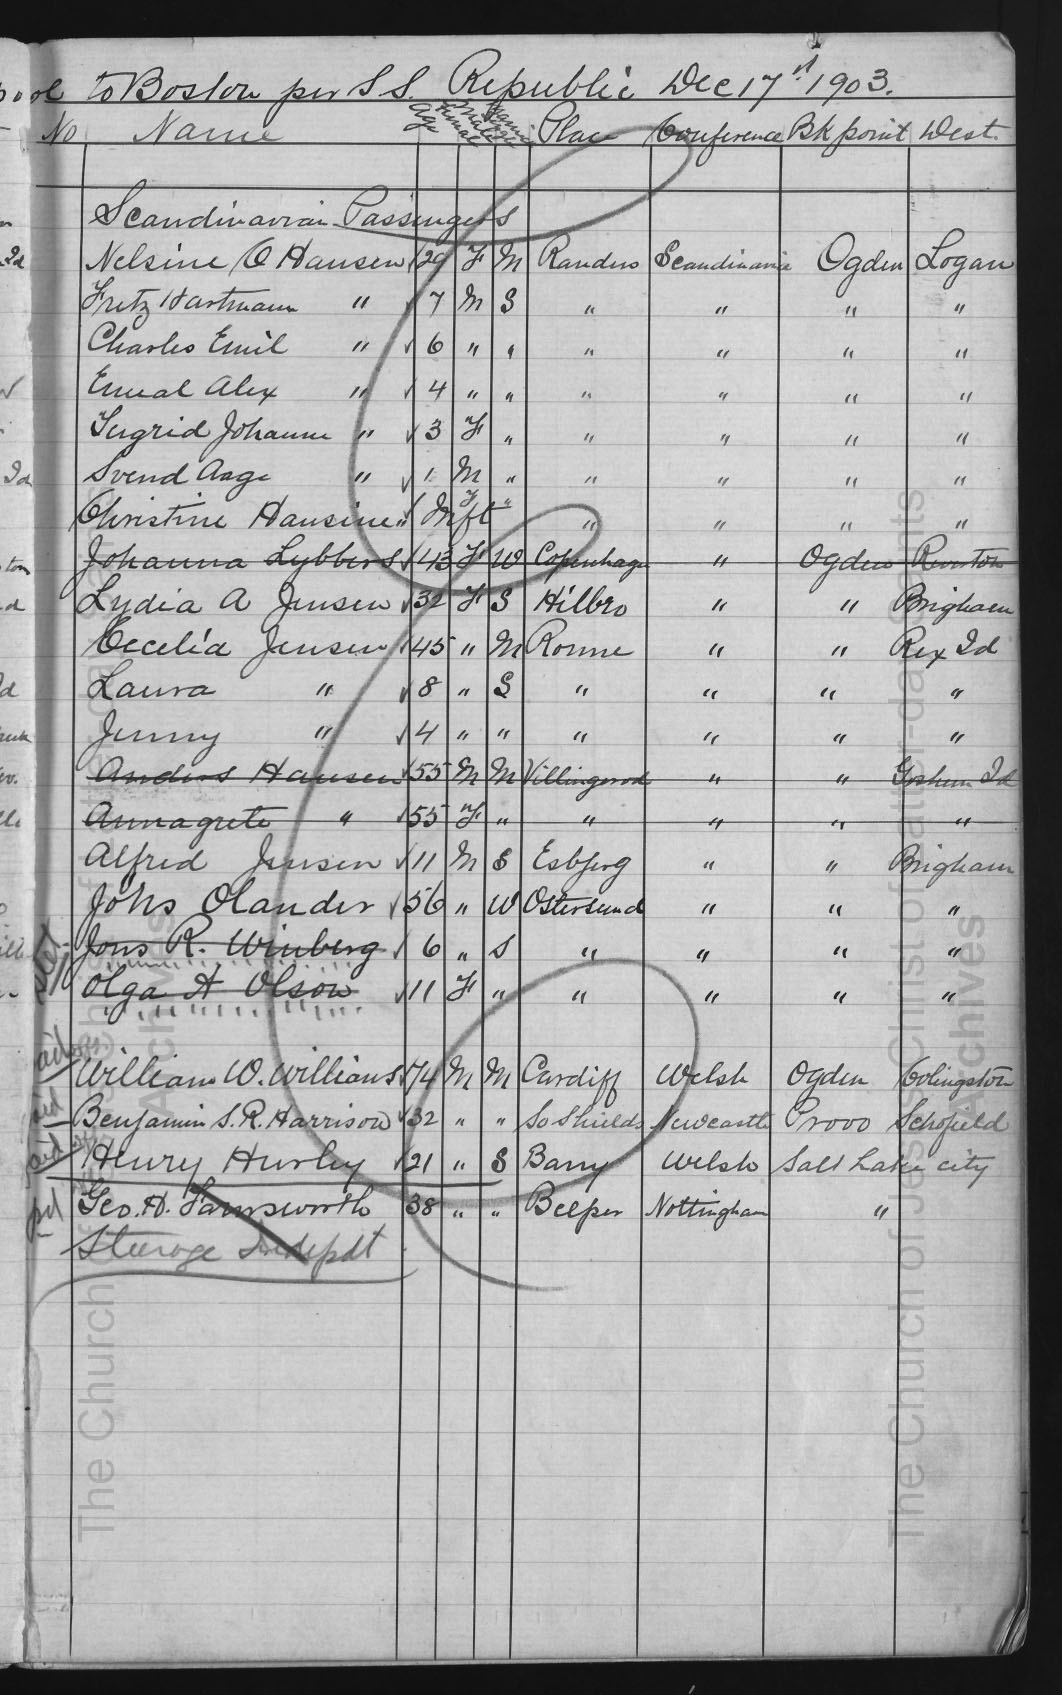 to Boston per S.S. Republic Dec 17th 1903.
No Name Age Place Conference Bk point Dest.
Scandinavian Passengers
Nelsine C Hansen √ 29 F M Randers Scandinavia Ogden Logan
Fritz Hartmann " √ 7 M S " " " "
Charles Emil " √ 6 " " " " " "
Emeal Alex " √ 4 " " " " " "
Ingrid Johanne " √ 3 F " " " " "
Svend Aage " √ 1 M " " " " "
Christine Hansine " √ Inft F " " " " "
Johanna Lybbers √ 43 F W Copenhage " Ogden Riverton
Lydia A Jensen √ 32 F S Hilbro " " Brigham
Cecelia Jensen √ 45 " M Ronne " " Rex Id
Laura " √ 8 " S " " " "
Jenny " √ 4 " " " " " "
Anders Hansen √ 55 M M Villingerod " " Goshen Id
Annagrete " √ 55 F " " " " "
Alfred Jensen √ 11 M S Esbjerg " " Brigham
Johs Olander √ 56 " W Ostersund " " "
Jons R. Winberg √ 6 " S " " " "
Olga A Olson √ 11 F " " " " "
William W. Williams √ 74 M M Cardiff Welsh Ogden Colingston
Benjamin S. R. Harrison √ 32 " " So Shields Newcastle Provo Schofield
Henry Hurley √ 21 " S Barry Welsh Salt Lake city
Geo. H. Farnsworth 38 " " Belper Nottingham "
Steerage Indepdt
The Church of Jesus Christ of Latter-day Saints
Archives
The Church of Jesus Christ of Latter-day Saints
Archives